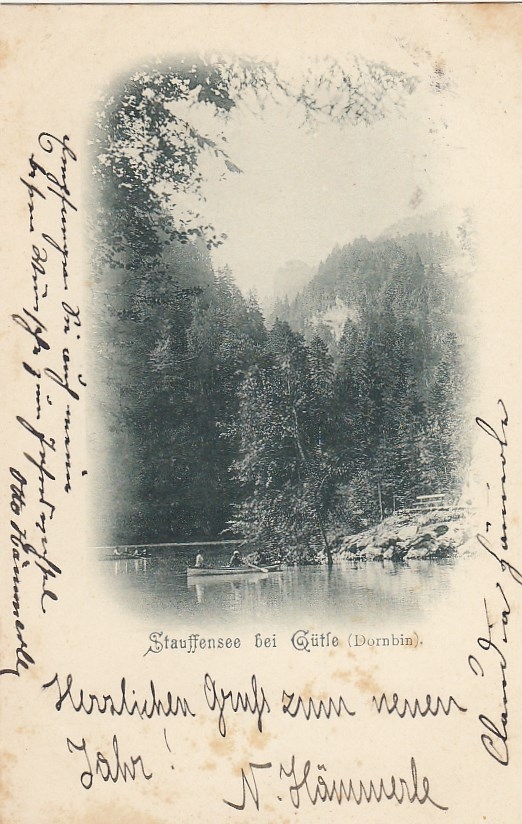 Stauffensee bei Gütle (Dornbin).
Herzlichen Gruß zum neuen
Jahr!
N. Hämmerle
Empfangen Sie auf meine
besten Wünsche zum Jahreswechsel
Otto Hämmerle
Claudia Hämmerle